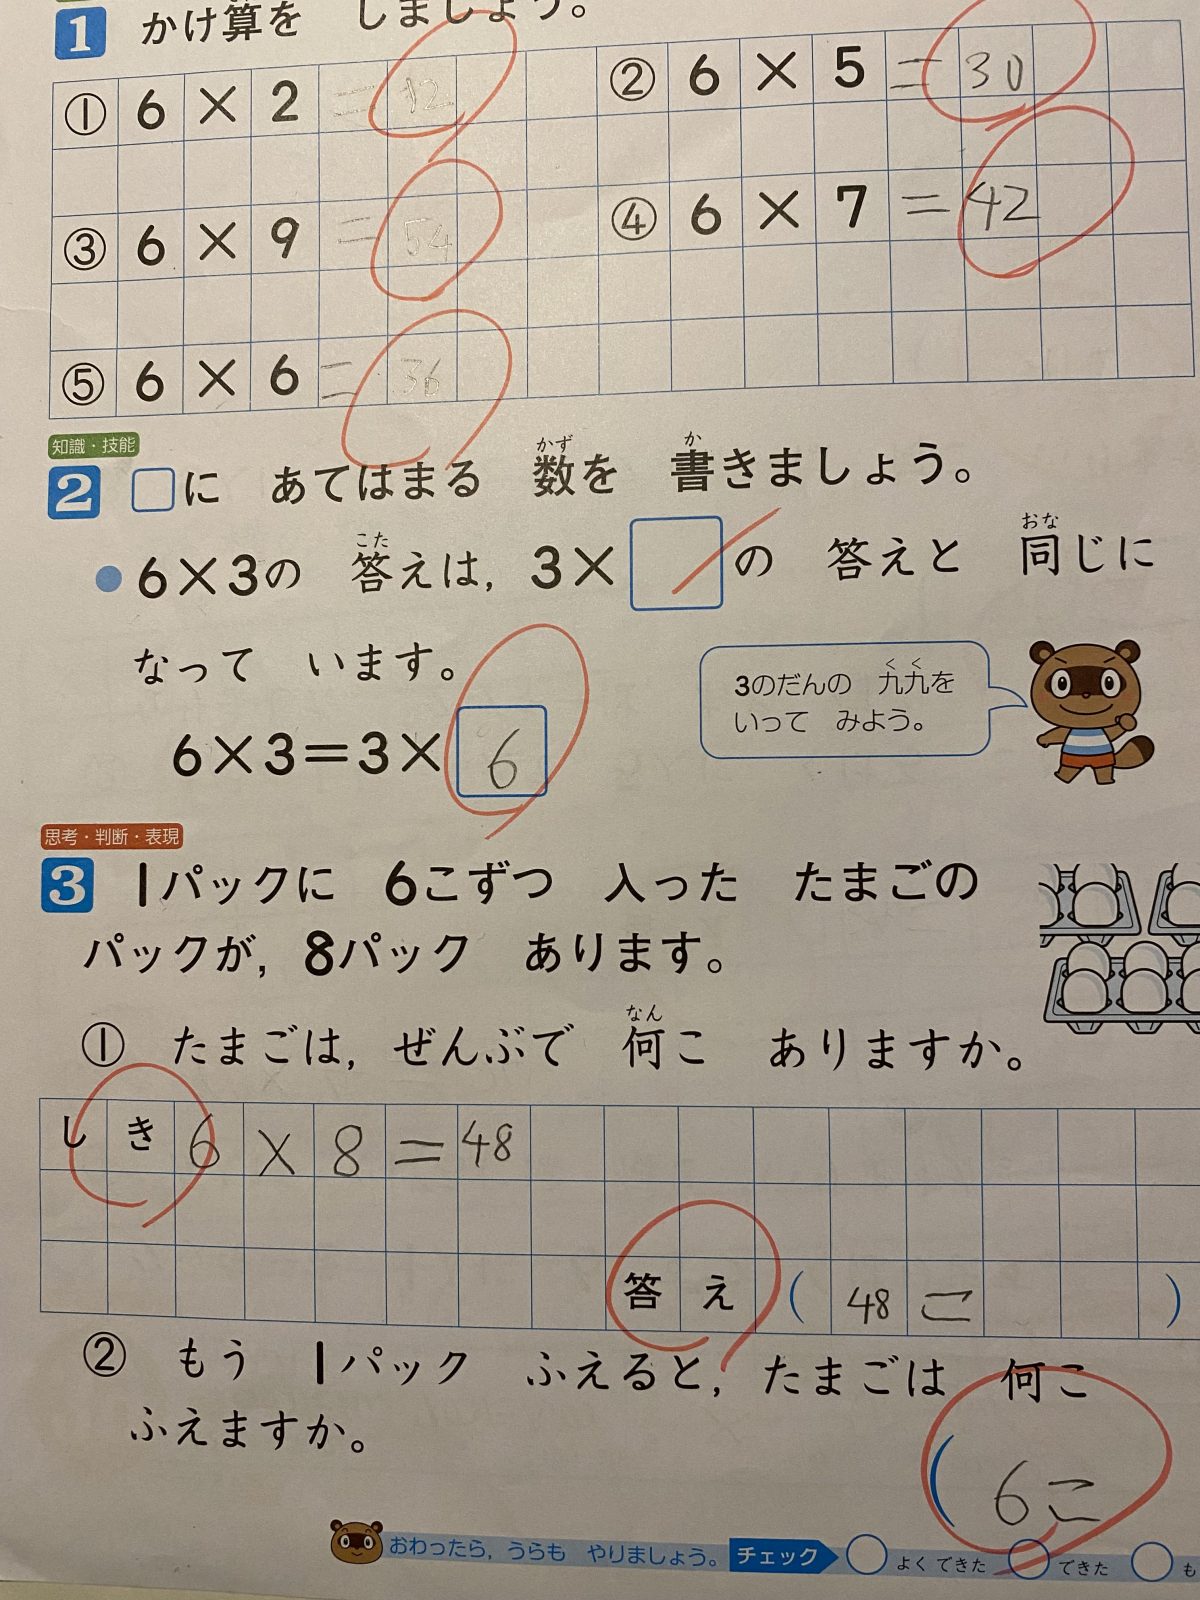 1 かけ算を しましょう。
① 6×2=12 ② 6×5=30
③ 6×9=54 ④ 6×7=42
⑤ 6×6=36
知識・技能
2 □に あてはまる 数を 書きましょう。
かず か
こた おな
6×3の 答えは, 3×□の 答えと 同じに
なって います。
3のだんの 九九を
くく
いって みよう。
6×3=3×6
思考・判断・表現
3 1パックに 6こずつ 入った たまごの
パックが, 8パック あります。
なん
① たまごは, ぜんぶで 何こ ありますか。
しき 6×8=48
答え ( 48こ )
② もう 1パック ふえると, たまごは 何こ
ふえますか。
( 6こ
おわったら, うらも やりましょう。 チェック よくできた できた も